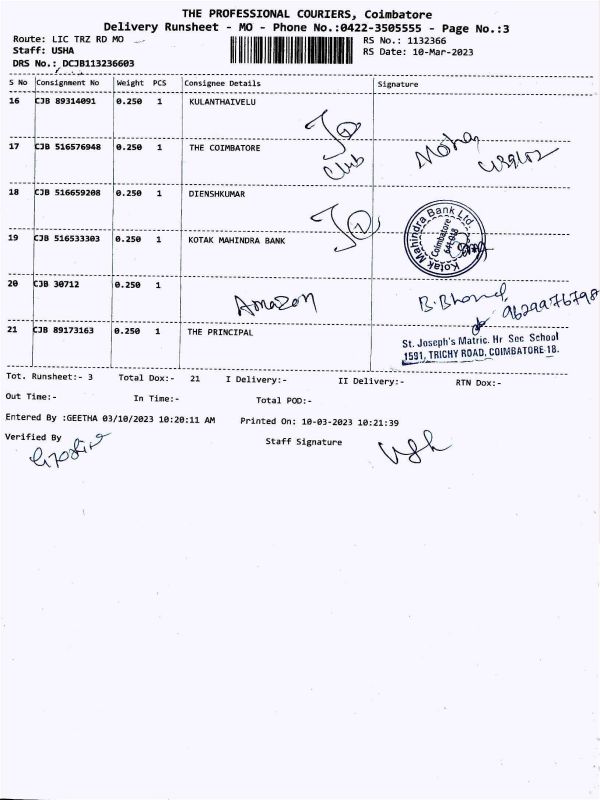 THE PROFESSIONAL COURIERS, Coimbatore
Delivery Runsheet - MO - Phone No.:0422-3505555 - Page No.:3
Route: LIC TRZ RD MO
RS No.: 1132366
Staff: USHA
RS Date: 10-Mar-2023
DRS No.: DCJB113236603
S No Consignment No Weight PCS Consignee Details Signature
16 CJB 89314091 0.250 1 KULANTHAIVELU
17 CJB 516576948 0.250 1 THE COIMBATORE
Mohan
Club
18 CJB 516659208 0.250 1 DIENSHKUMAR
19 CJB 516533303 0.250 1 KOTAK MAHINDRA BANK
Kotak Mahindra Bank Ltd
Coimbatore
641 018
20 CJB 30712 0.250 1
Amazon
9629976798
21 CJB 89173163 0.250 1 THE PRINCIPAL
St. Joseph's Matric. Hr Sec School
1591, TRICHY ROAD, COIMBATORE-18.
Tot. Runsheet:- 3 Total Dox:- 21 I Delivery:- II Delivery:- RTN Dox:-
Out Time:- In Time:- Total POD:-
Entered By :GEETHA 03/10/2023 10:20:11 AM Printed On: 10-03-2023 10:21:39
Verified By Staff Signature